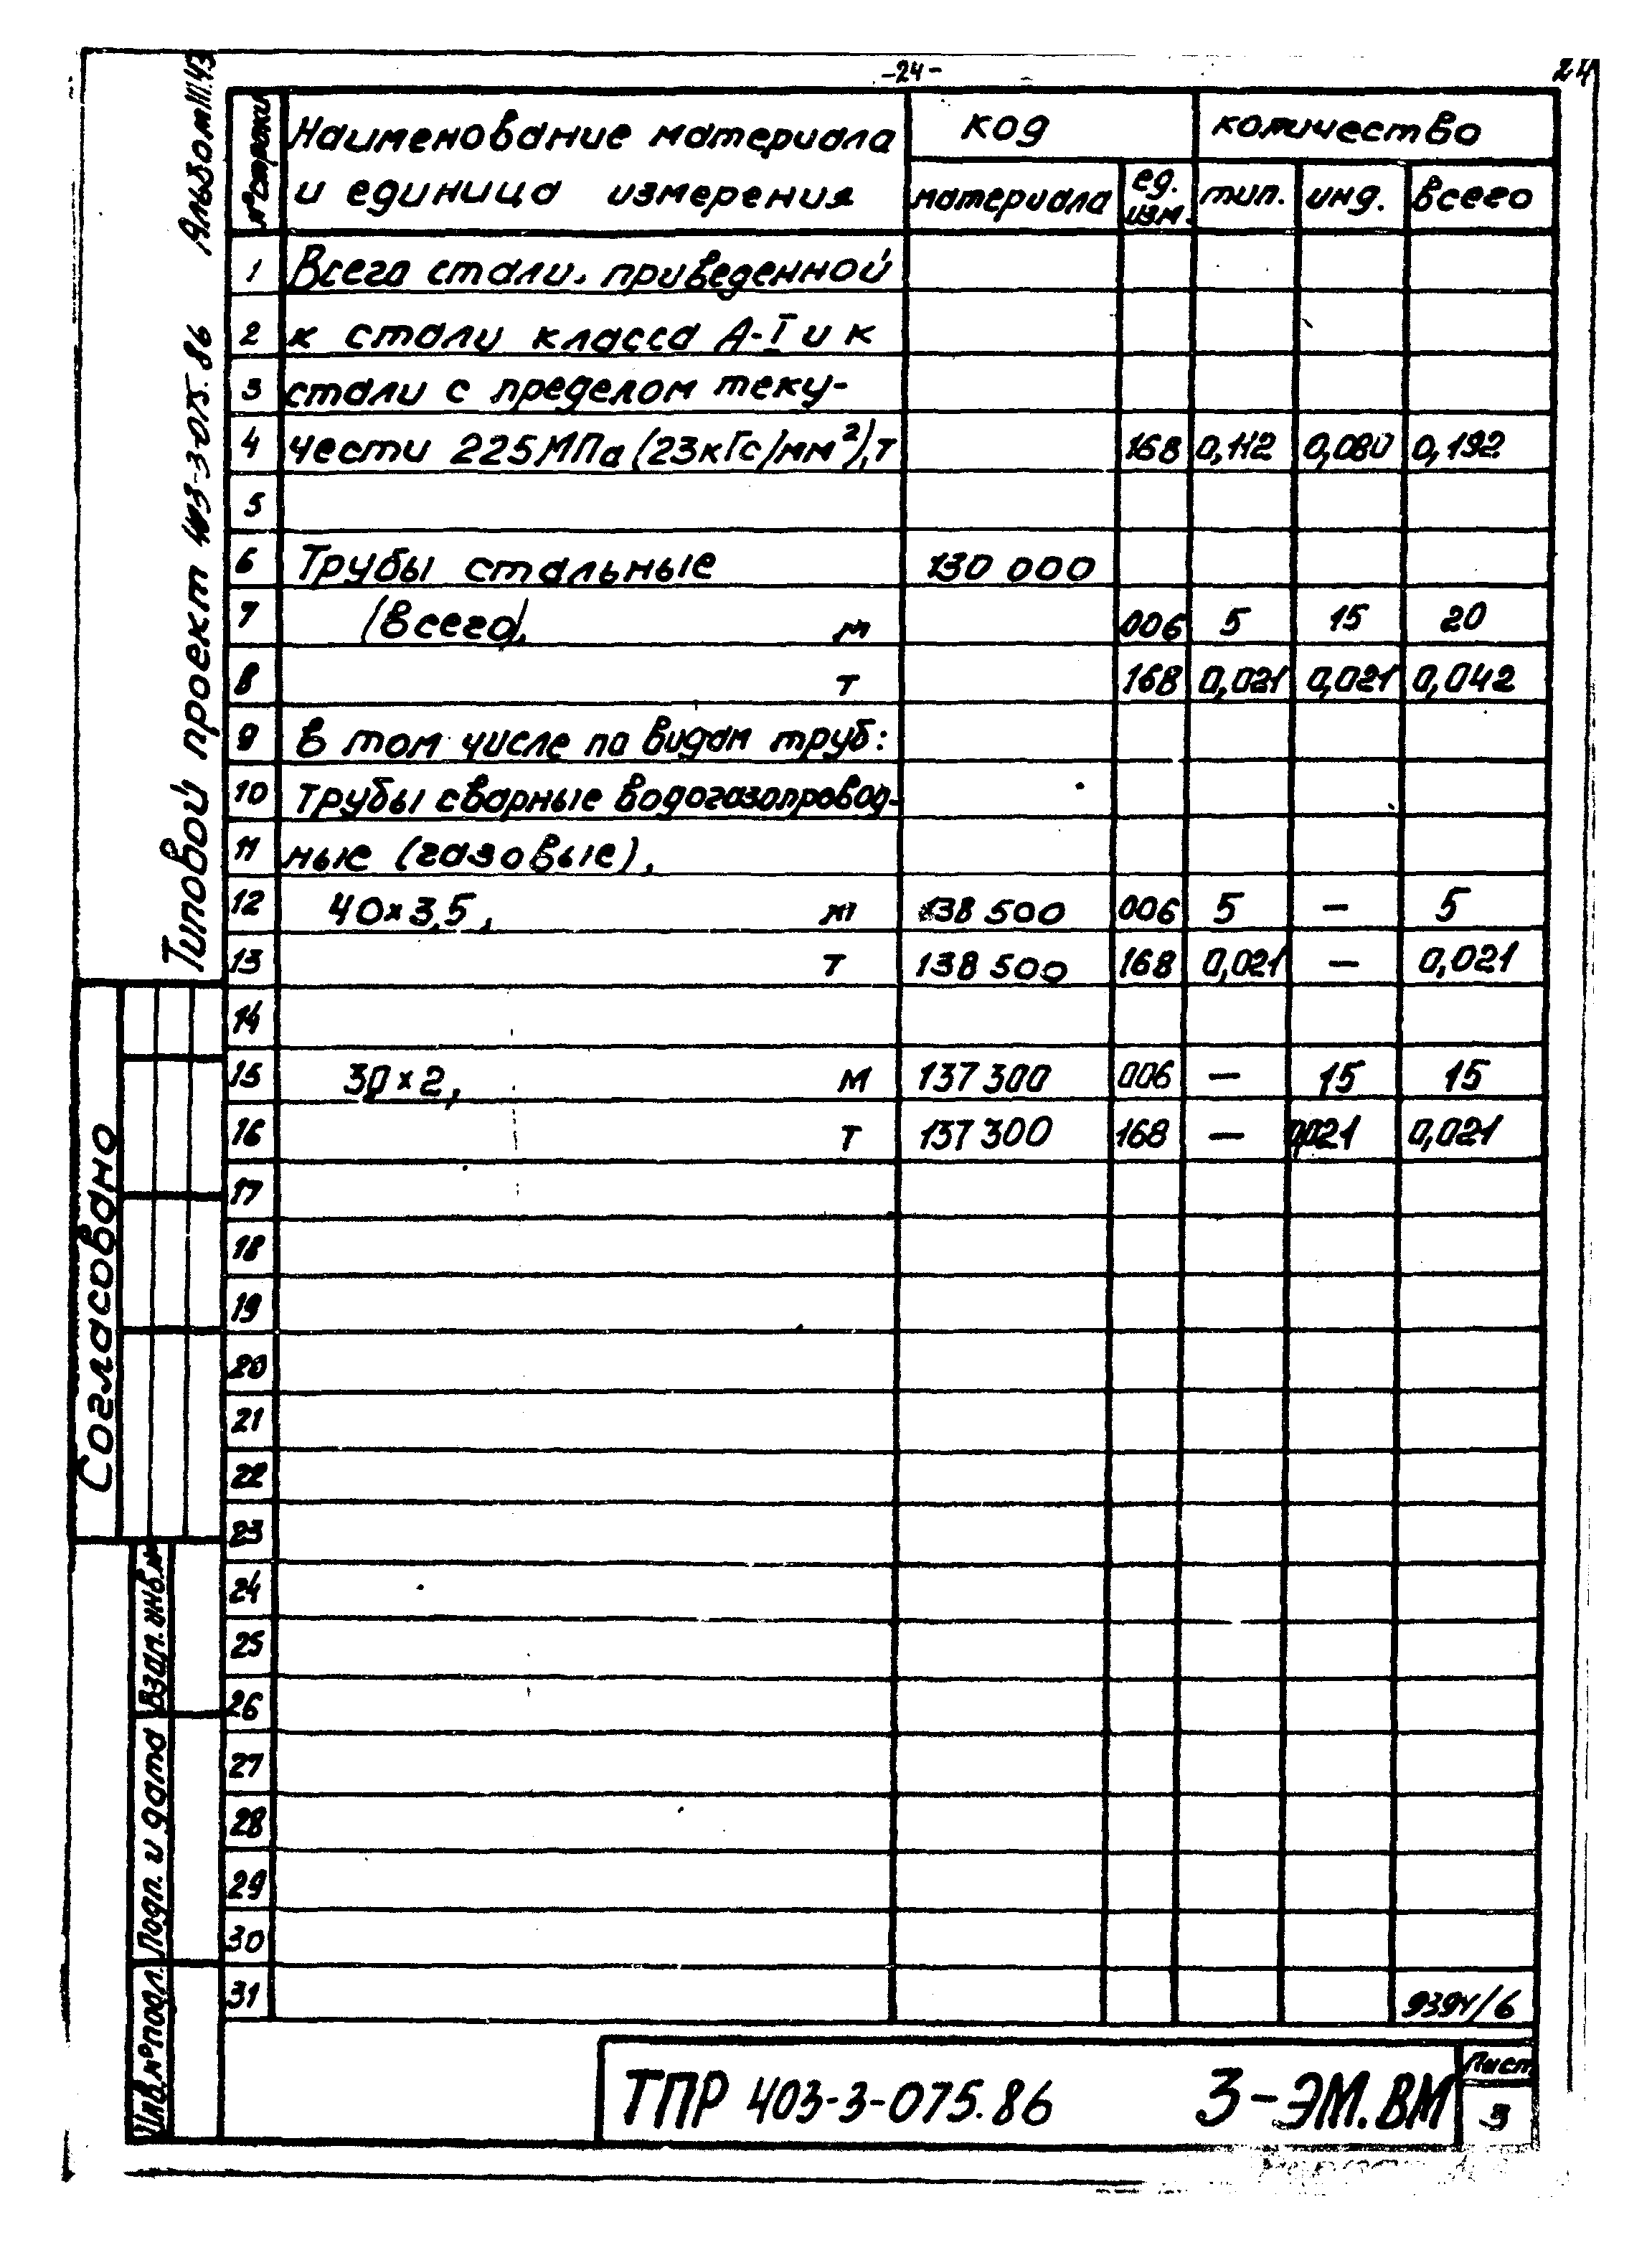 -24-
24
№ строки
Наименование материала
и единица измерения
код
количество
материала
ед.
изм.
тип.
инд.
всего
1 Всего стали, приведенной
2 к стали класса А-I и к
3 стали с пределом теку-
4 чести 225 МПа (23 кГс/мм²), т 168 0,112 0,080 0,192
5
6 Трубы стальные 130 000
7 (всего), м 006 5 15 20
8 т 168 0,021 0,021 0,042
9 в том числе по видам труб:
10 трубы сварные водогазопровод-
11 ные (газовые),
12 40×3,5, м 138 500 006 5 – 5
13 т 138 500 168 0,021 – 0,021
14
15 30×2, м 137 300 006 – 15 15
16 т 137 300 168 – 0,021 0,021
17
18
19
20
21
22
23
24
25
26
27
28
29
30
31
9394/6
ТПР 403-3-075.86 3-ЭМ.ВМ
Лист
3
Типовой проект 403-3-075.86 Альбом III.43
Согласовано
Взал. инв. №
Подп. и дата
Инв. № подл.